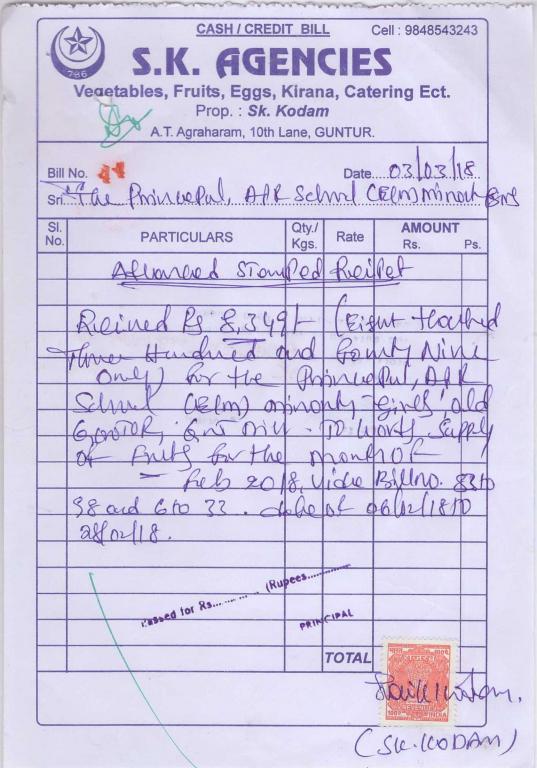 CASH / CREDIT BILL
Cell : 9848543243
786
S.K. AGENCIES
Vegetables, Fruits, Eggs, Kirana, Catering Ect.
Prop. : Sk. Kodam
A.T. Agraharam, 10th Lane, GUNTUR.
Bill No.
Date 03/03/18
Sri The Principal, APR School (E/m) Minority
Sl. No.
PARTICULARS
Qty./ Kgs.
Rate
AMOUNT
Rs. Ps.
Advanced Stamped Reciet
Recived Rs. 8,349/- (Eight Thousand
Three Hundred and Fourty Nine
only) for the Principal, APR
School (E/m) minority girls, old
Guntur, To Words Supply
of Fruits for the month of
Feb 2018, Vide Bill no. 83 to
98 and 6 to 33. date of 06/02/18 to
28/02/18.
Passed for Rs............(Rupees............
PRINCIPAL
TOTAL
REVENUE
INDIA
(SK. KODAM)